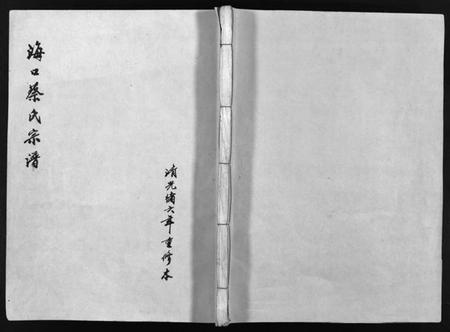 海口蔡氏宗譜
清光緒六年重修本